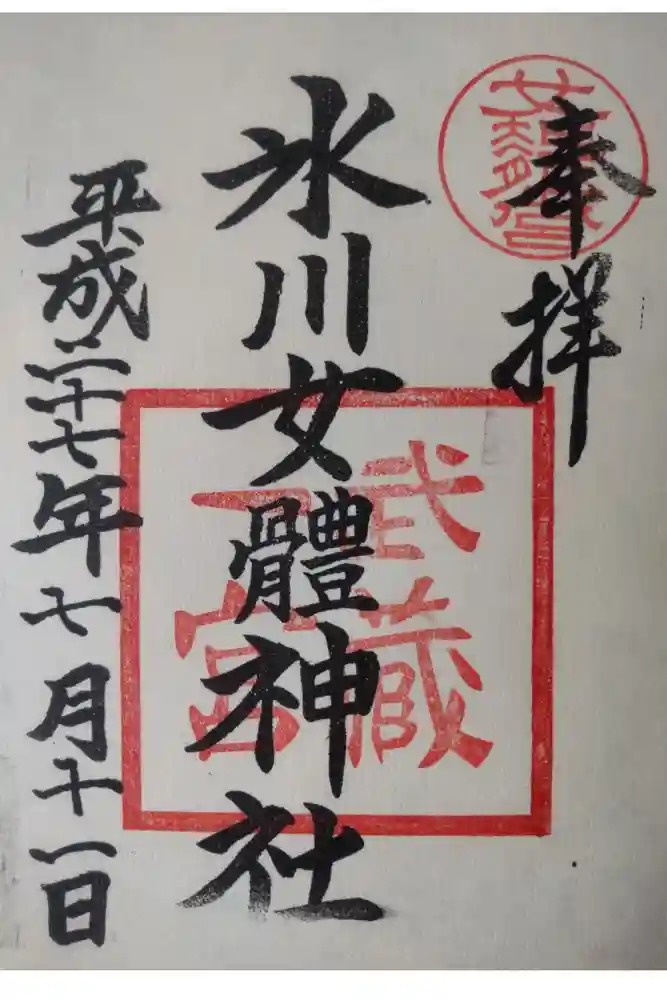 奉拝
武蔵
一宮
氷川女體神社
平成二十七年七月十一日